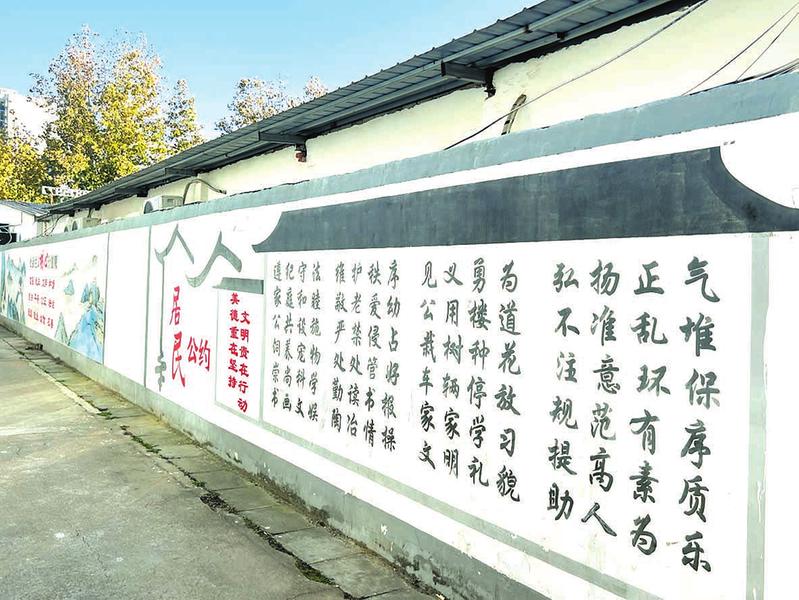 居民
公约
文明贵在行动
美德重在坚持
遵纪守法 维护秩序 见义勇为 弘扬正气
家庭和睦 敬老爱幼 公用楼道 不准乱堆
公共设施 严禁侵占 栽树种花 注意环保
饲养宠物 处处管好 车辆停放 规范有序
崇尚科学 勤读书报 家家学习 提高素质
书画文娱 陶冶情操 文明礼貌 助人为乐